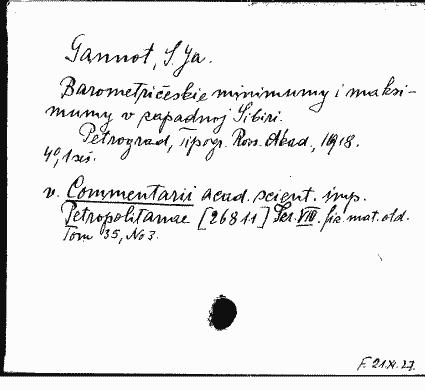 Gannot, S. Ja.
Barometričeskie minimumy i maksi-
mumy v zapadnoj Sibiri.
Petrograd, tipogr. Ross. Akad., 1918.
4°, 1 sš.
v. Commentarii acad. scient. imp.
Petropolitanae [26811] Ser. VIII. fiz. mat. otd.
Tom 35, No 3.
F. 21.XI.27.